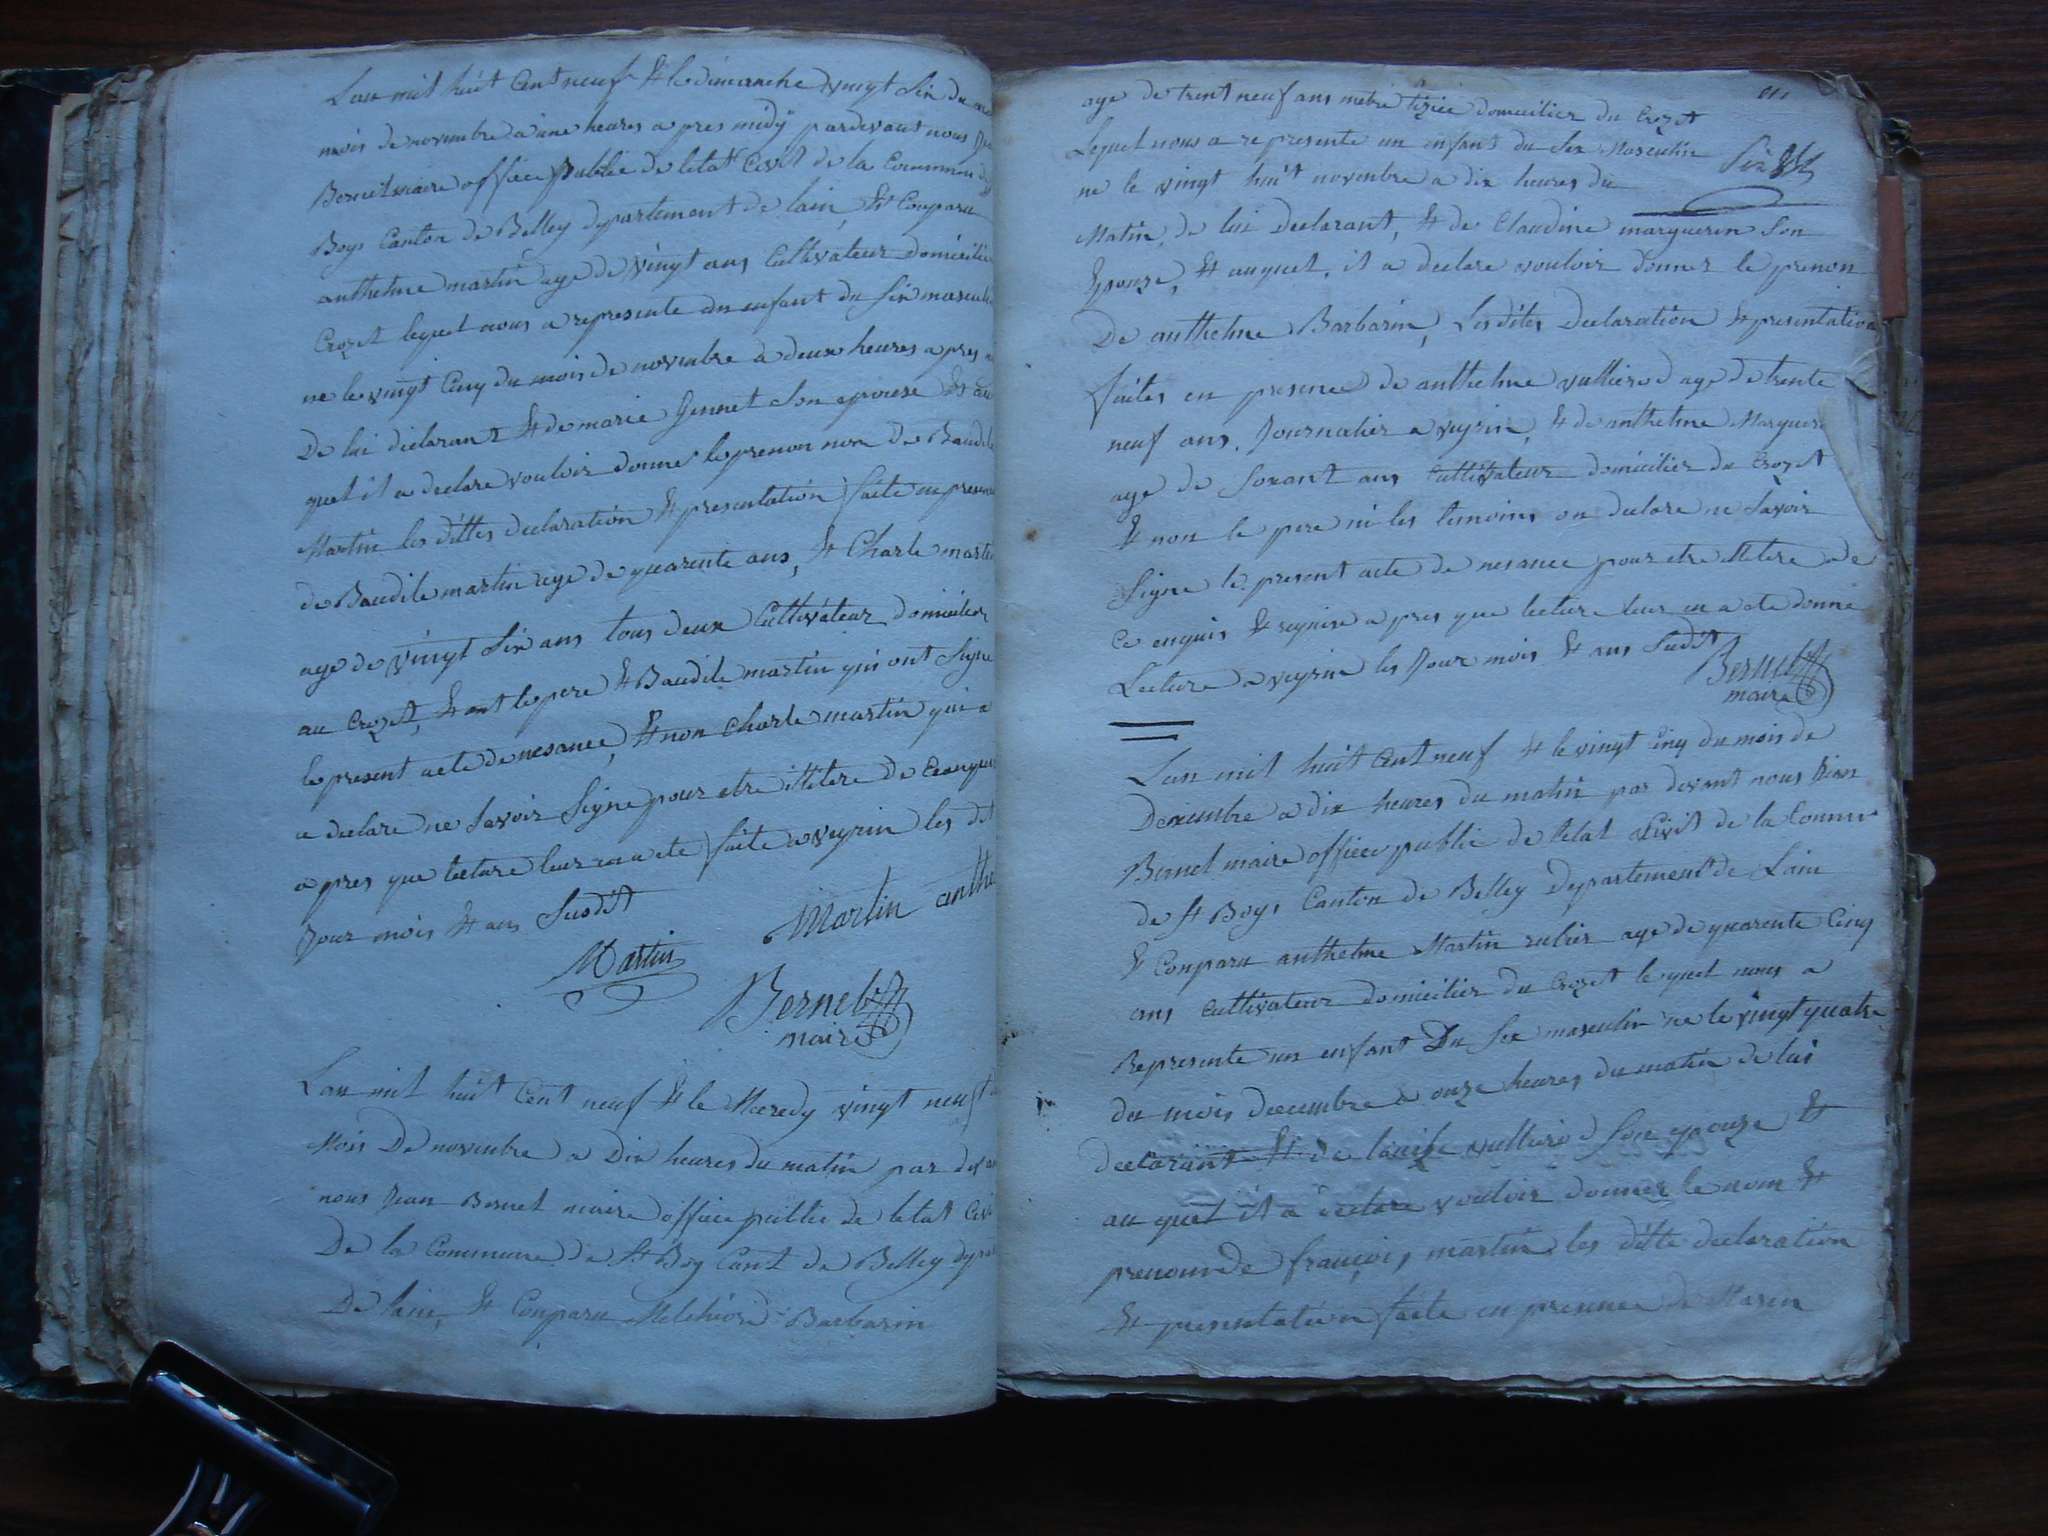 Lan mil huit Cent neuf & le dimanche vingt Six du
mois de novembre a une heures a pres midy pardevant nous
Bernet maire officie publie de letat Civil de la Commune de
Boys Canton de Belley departement de lain & Conparu
anthelme martin age de vingt ans Cultivateur domicilie
Crozet lequel nous a represente un enfant du Six masculi
ne le vingt Cinq du mois de novembre a deux heures a pres
De lui declarant & de marie Gennet Son epouse & au
quel il a declare vouloir donne le prenon non de Baudile
Martin les dittes declaration & presentation faite en presence
de Baudile martin age de quarente ans, & Charle martin
age de vingt Six ans tous deux Cultivateur domicilier
au Crozet, & ont le pere & Baudile martin qui ont Signe
le present acte de nesance, & non Charle martin qui a
a declare ne Savoir Signe pour etre illitere de Ceenquis
a pres que lecture leur en a ete faite a veyrin les dit
Jour mois & ans Susdit
Martin anthe
Martin
Bernet
maire
Lan mil huit Cent neuf & le Meredy vingt neuf
Mois De novembre a Dix heures du matin par devan
nous Jean Bernet maire officie publie de letat Civi
De la Commune de St Boy Cant de Belley depar
De lain, & Conparu Melchiore Barbarin
age de trent neuf ans domicilier du Crozet
Lequel nous a represente un enfant du Sex Masculin
ne le vingt huit novenbre a dix heures du
Matin, de lui Declarant, & de Claudine marguerin Son
Epouze, & auquel, il a declare vouloir donner le prenon
De anthelme Barbarin, Lesdites Declaration & presentation
faites en presence de anthelme vulliero d age de trente
neuf ans, Journalier a veyrin, & de anthelme Marguer
age de Soxant ans Cultivateur domicilier du Crozet
& non le pere ni les temoins on declare ne Savoir
Signe le present acte de nesance pour etre illitere de
Ce enquis & requise a pres que lecture leur en a ete donne
Lecture a veyrin les Jour mois & ans Sudit
Bernet
maire
Lan mil huit Cent neuf & le vingt Cinq du mois de
Decenmbre a dix heures du matin par devant nous Jean
Bernet maire officie public de letat Civil de la Commu
de St Boys Canton de Belley Departement de Lain
& Conparu anthelme Martin age de quarente Cinq
ans Cultivateur domicilier du Crozet lequel nous a
Represente un enfant Du Sex masculin ne le vingt quatre
du mois decembre a onze heures du matin de lui
declarant & de louise vulliero d Son epouze &
au quel il a declare vouloir donner le nom &
prenom de françois martin les ditte declaration
& presentation faite en presence de Marin